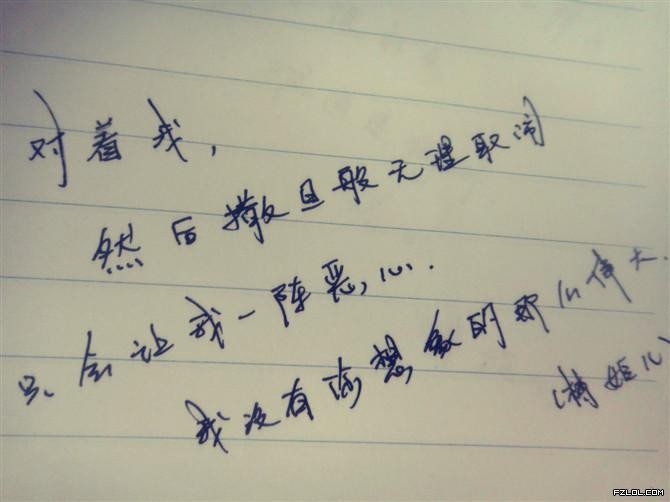 对着我，
然后撒旦般无理取闹
只会让我一阵恶心.
我没有你想象的那么伟大.
FZLOL.COM